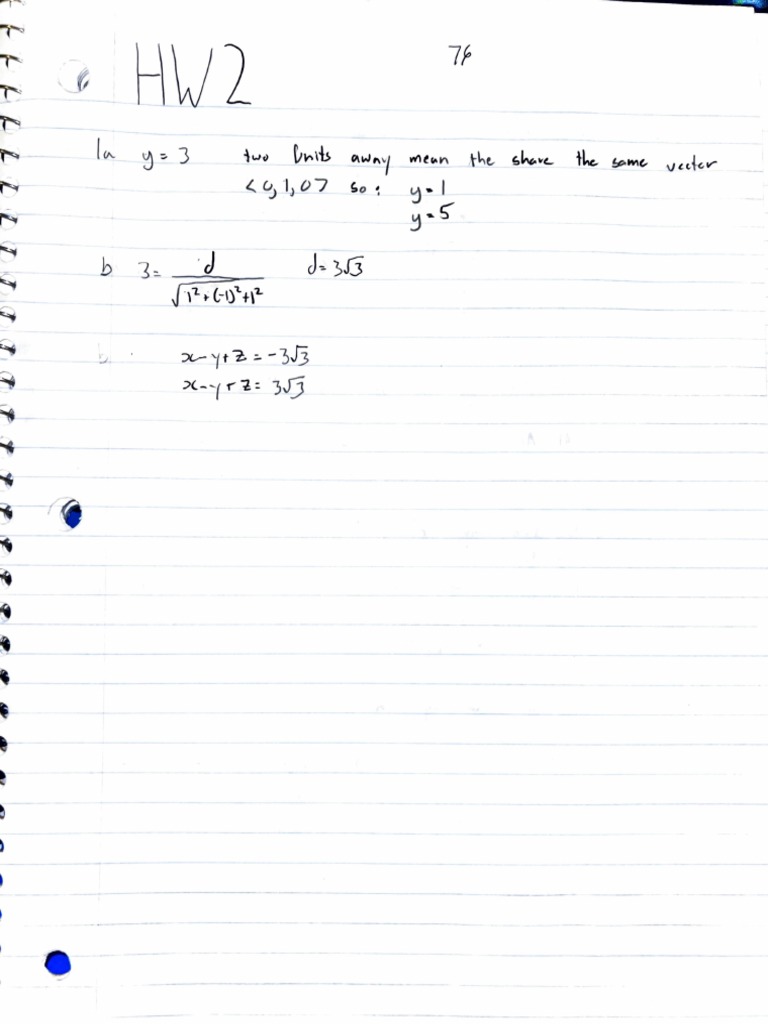 HW2
76
1a y = 3 two Units away mean the share the same vector
<0,1,0> so: y=1
y=5
b 3 = d / √(1²+(-1)²+1²) d=3√3
b.
x-y+z = -3√3
x-y+z = 3√3